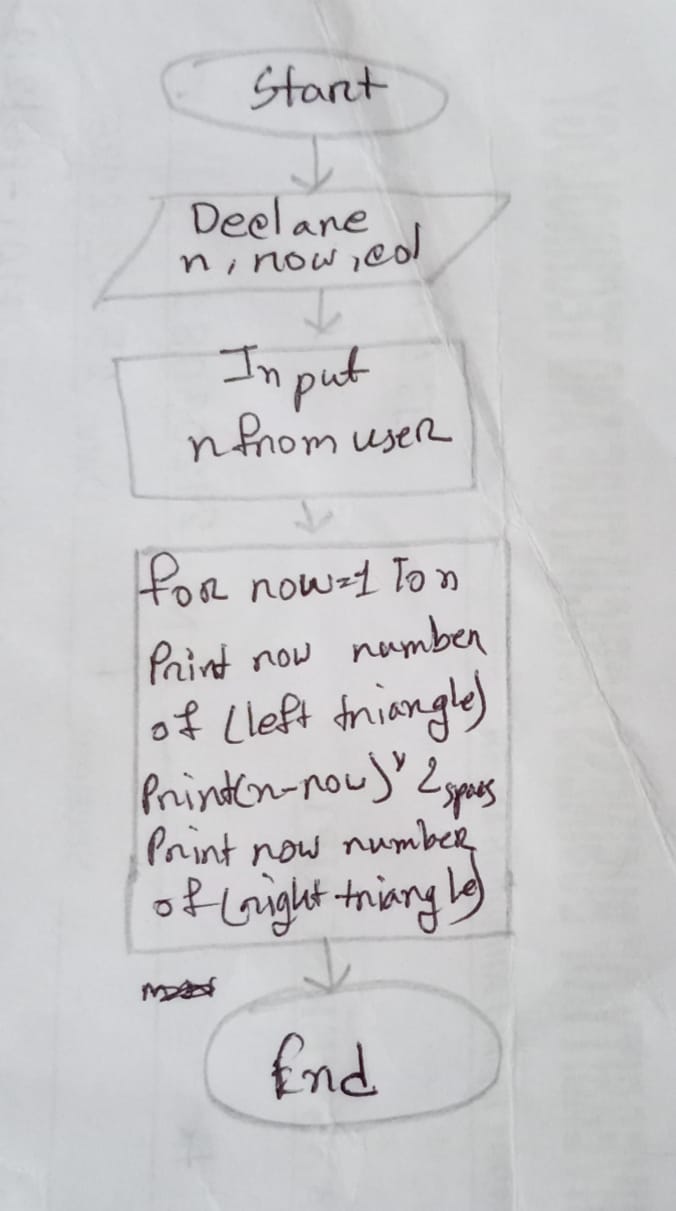 Start
Declare
n, row, col
Input
n from user
for row=1 To n
Print row number
of (left triangle)
Print(n-row)*2 spaces
Print row number
of (right triangle)
End